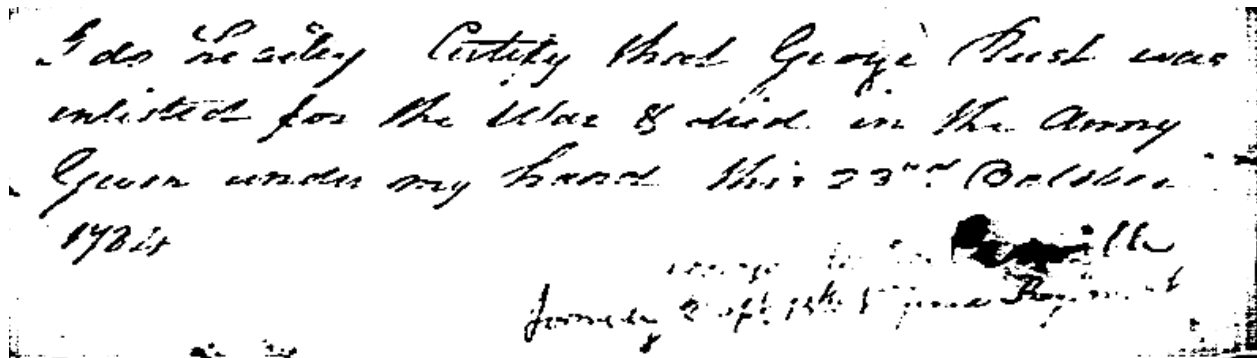 I do hereby Certify that George Rust was
enlisted for the War & died in the Army
Given under my hand this 23rd October
1784
formerly Capt 15th Regiment